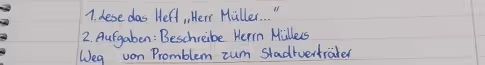 1. Lese das Heft „Herr Müller..."
2. Aufgaben: Beschreibe Herrn Müllers
Weg von Promblem zum Stadtverträter